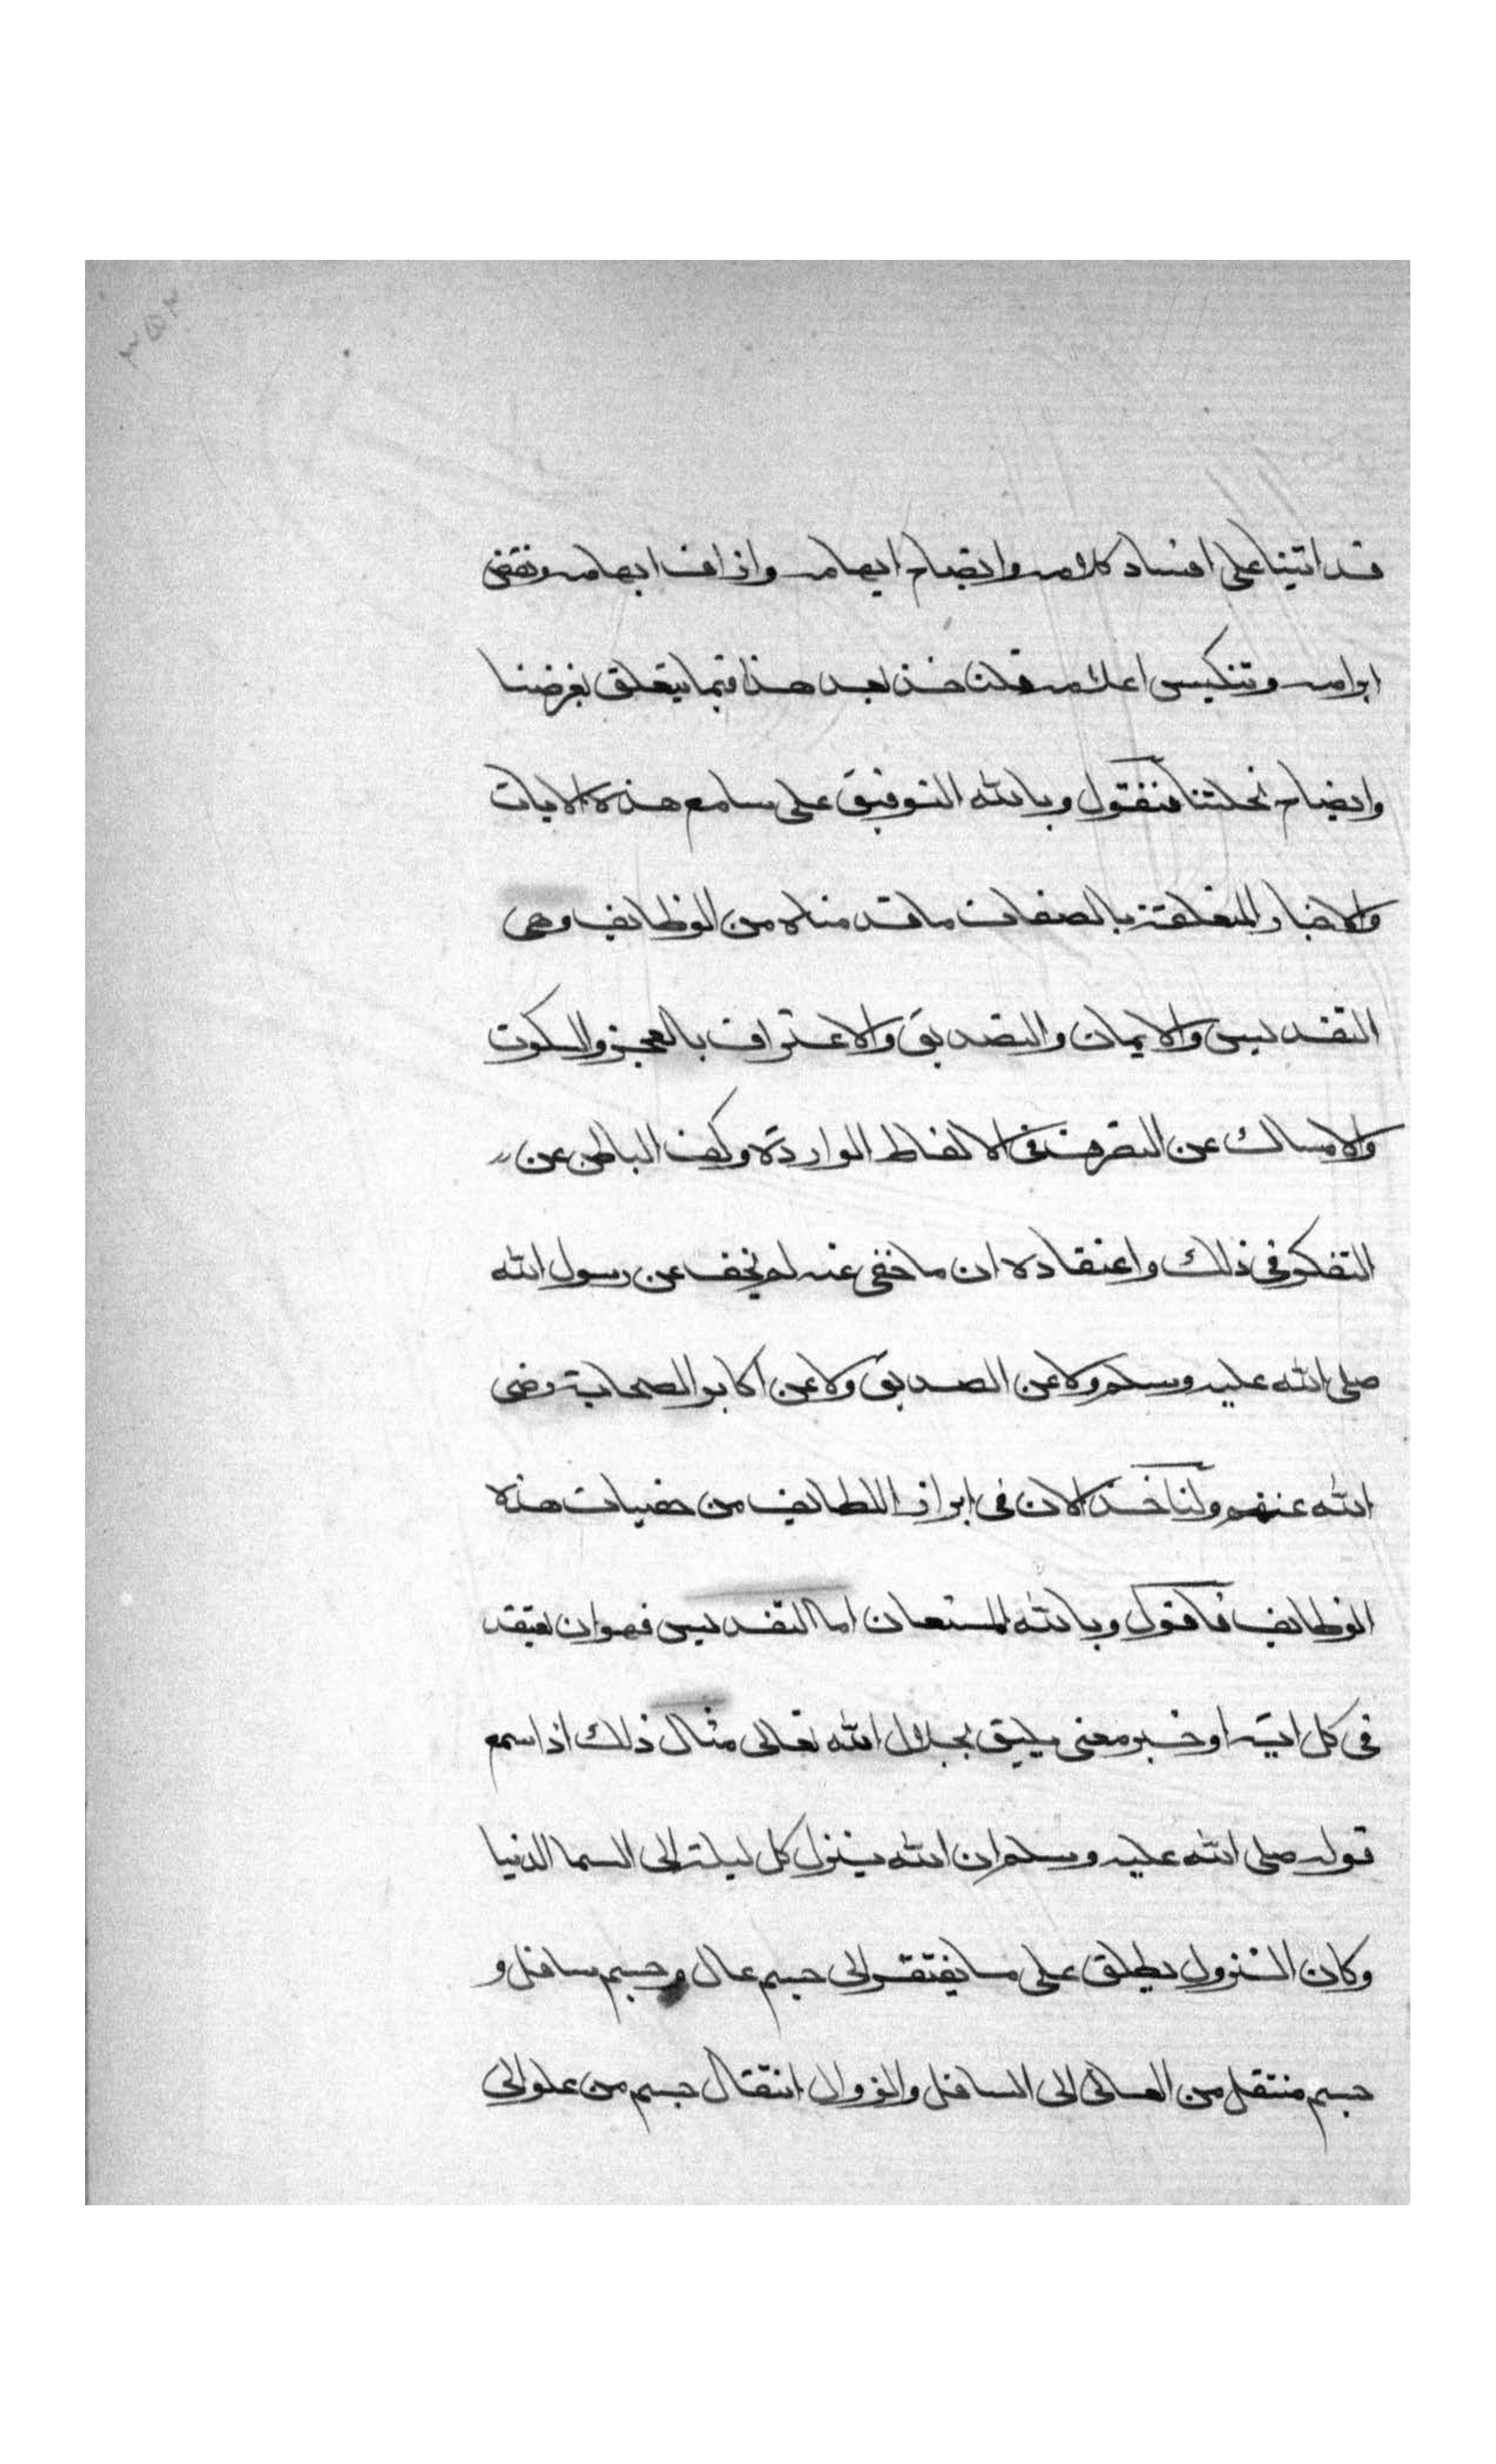 ٢٥٣
قد اتينا على افساد كلامه وايضاح ايهامه وازاف ابهامه ونقض
ابرامه وتنكيس اعلامه فلناخذ بعد هذا فيما يتعلق بغرضنا
وايضاح نحلتنا فنقول وبالله التوفيق على سامع هذه الايات
والاخبار المتعلقة بالصفات ما قدمناه من الوظايف وهى
التقديس والايمان والتصديق والاعتراف بالعجز والسكوت
والامساك عن التصرف فى الالفاظ الواردة وكف الباطن عن
التفكر فى ذلك واعتقاده ان ما خفى عنه لم يخف عن رسول الله
صلى الله عليه وسلم ولا عن الصديق ولا عن اكابر الصحابة رضى
الله عنهم ولناخذ الان فى ابراز اللطايف من خفيات هذه
الوظايف فاقول وبالله المستعان اما التقديس فهو ان يعتقد
فى كل اية او خبر معنى يليق بجلال الله تعالى مثال ذلك اذا سمع
قوله صلى الله عليه وسلم ان الله ينزل كل ليلة الى السما الدنيا
وكان النزول يطلق على ما يفتقر الى جسم عال وجسم سافل و
جسم منتقل من العالى الى السافل والنزول انتقال جسم من علو الى